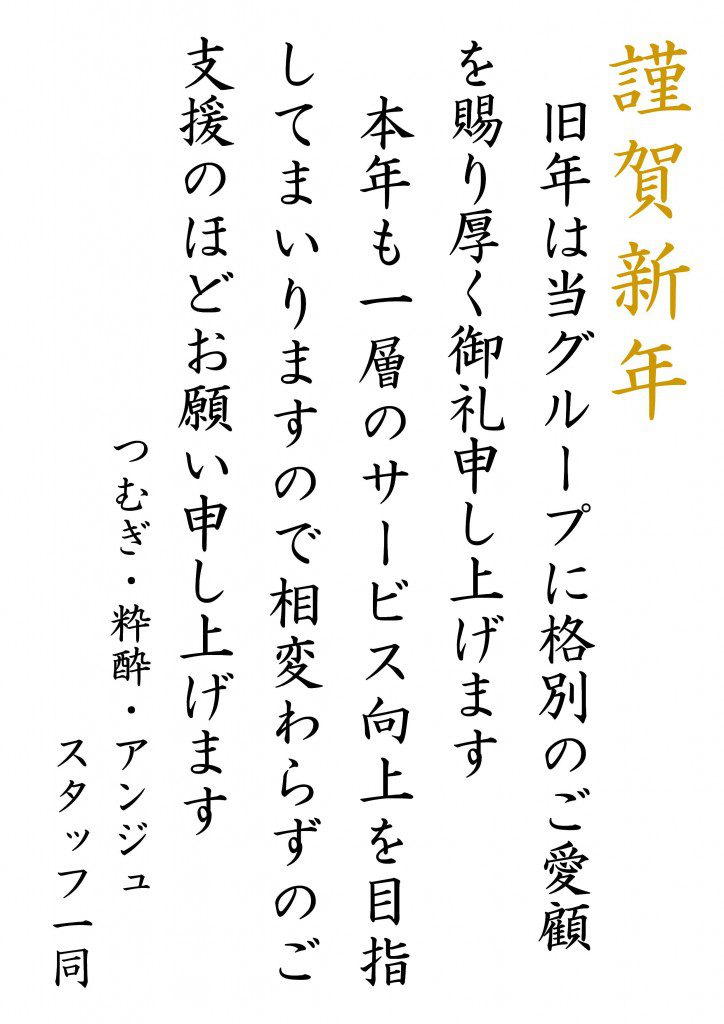 謹賀新年
旧年は当グループに格別のご愛顧
を賜り厚く御礼申し上げます
本年も一層のサービス向上を目指
してまいりますので相変わらずのご
支援のほどお願い申し上げます
つむぎ・粋酔・アンジュ
スタッフ一同